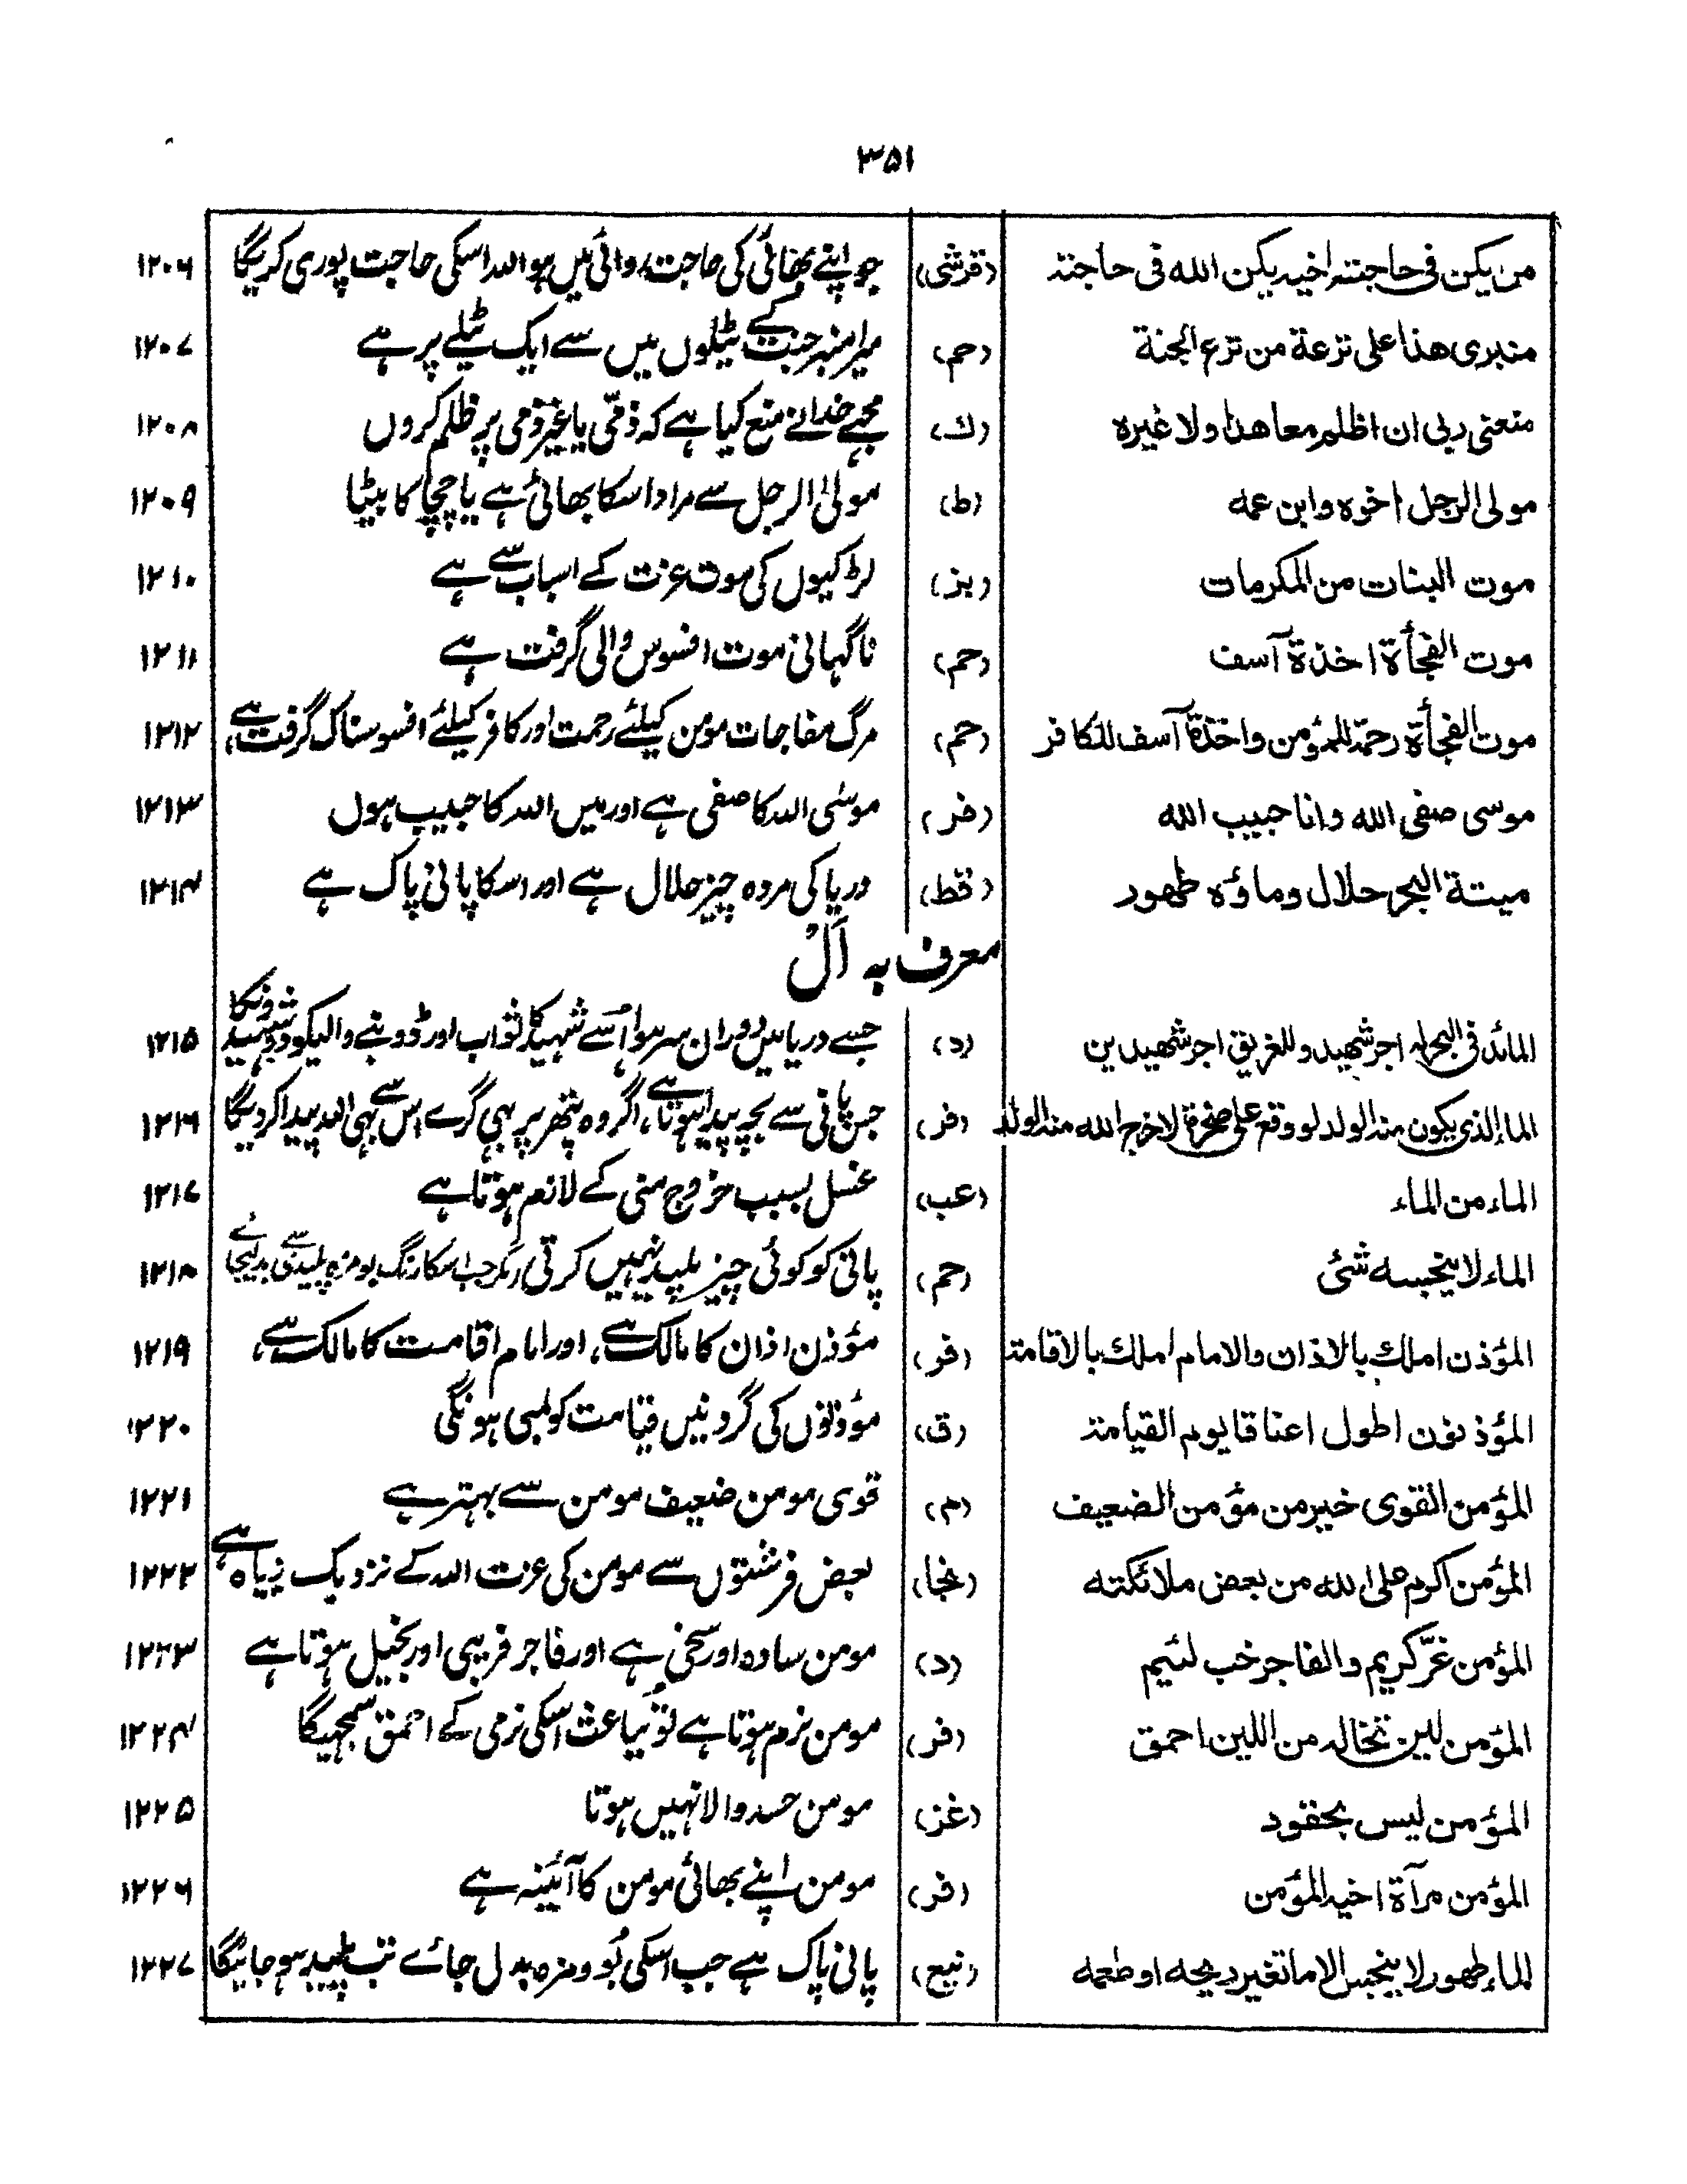 ۳۵۱
من یکن فی حاجتہ اخیہ یکن اللہ فی حاجتہ (قرشی) جو اپنے بھائی کی حاجت روائی میں ہو اللہ اسکی حاجت پوری کریگا ۱۲۰۶
منبری ھذا علی ترعة من ترع الجنة (حم) میرا منبر جنت کے ٹیلوں میں سے ایک ٹیلے پر ہے ۱۲۰۷
منعنی ربی ان اظلم معاھدا ولا غیرہ (ك) مجھے خدا نے منع کیا ہے کہ ذمّی یا غیر ذمی پر ظلم کروں ۱۲۰۸
مولی الرجل اخوہ وابن عمہ (ط) مولیٰ الرجل سے مراد اسکا بھائی ہے یا چچا کا بیٹا ۱۲۰۹
موت البنات من المکرمات (بز) لڑکیوں کی موت عزت کے اسباب سے ہے ۱۲۱۰
موت الفجأة اخذة آسف (حم) ناگہانی موت افسوس والی گرفت ہے ۱۲۱۱
موت الفجأة رحمة للمؤمن واخذة آسف للکافر (حم) مرگ مفاجات مومن کیلئے رحمت اور کافر کیلئے افسوسناک گرفت ہے، ۱۲۱۲
موسی صفی اللہ وانا حبیب اللہ (فر) موسٰی اللہ کا صفی ہے اور میں اللہ کا حبیب ہوں ۱۲۱۳
میتة البحر حلال وماؤہ طھور (قط) دریا کی مردہ چیز حلال ہے اور اسکا پانی پاک ہے ۱۲۱۴
معرف بہ اَلْ
المائد فی البحر لہ اجر شھید وللغریق اجر شھیدین (د) جسے دریا میں دوران سر ہو اُسے شہید کا ثواب اور ڈوبنے والیکو دو شہیدونکا ۱۲۱۵
الماء الذی یکون منہ الولد لو وقع علی صخرة لاخرج اللہ منہ الولد (فر) جس پانی سے بچہ پیدا ہوتا ہے، اگر وہ پتھر پر بھی گرے اس سے بھی اللہ پیدا کردیگا ۱۲۱۶
الماء من الماء (عب) غسل بسبب خروج منی کے لازم ہوتا ہے ۱۲۱۷
الماء لا ینجسہ شئ (حم) پانی کو کوئی چیز پلید نہیں کرتی (مگر جب اسکا رنگ بو مزہ پلیدی سے بدل جائے ۱۲۱۸
المؤذن املك بالاذان والامام املك بالاقامة (فر) مؤذن اذان کا مالک ہے، اور امام اقامت کا مالک ہے، ۱۲۱۹
المؤذنون اطول اعناقا یوم القیامة (ق) موذنوں کی گردنیں قیامت کو لمبی ہونگی ۱۲۲۰
المؤمن القوی خیر من مؤمن الضعیف (م) قوی مومن ضعیف مومن سے بہتر ہے ۱۲۲۱
المؤمن اکرم علی اللہ من بعض ملائکتہ (نجا) بعض فرشتوں سے مومن کی عزت اللہ کے نزدیک زیادہ ہے، ۱۲۲۲
المؤمن غرّ کریم والفاجر خب لئیم (د) مومن سادہ اور سخی ہے اور فاجر فریبی اور بخیل ہوتا ہے ۱۲۲۳
المؤمن لین تخالہ من اللین احمق (فر) مومن نرم ہوتا ہے تُو بباعث اسکی نرمی کے احمق سمجھیگا ۱۲۲۴
المؤمن لیس بحقود (غز) مومن حسد والا نہیں ہوتا ۱۲۲۵
المؤمن مرآة اخیہ المؤمن (فر) مومن اپنے بھائی مومن کا آئینہ ہے ۱۲۲۶
الماء طھور لا ینجس الا ما تغیر ریحہ او طعمہ (نیع) پانی پاک ہے جب اسکی بُو و مزہ بدل جائے تب پلید ہو جائیگا ۱۲۲۷